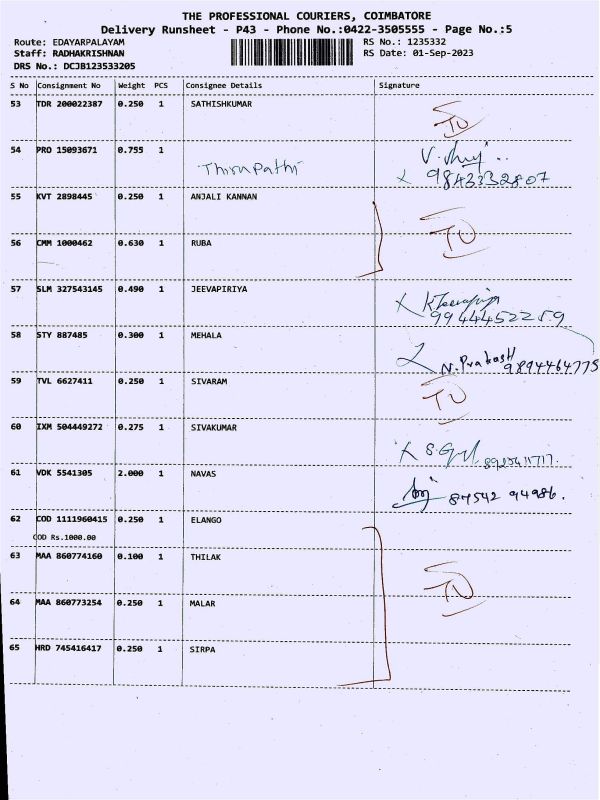 THE PROFESSIONAL COURIERS, COIMBATORE
Delivery Runsheet - P43 - Phone No.:0422-3505555 - Page No.:5
Route: EDAYARPALAYAM RS No.: 1235332
Staff: RADHAKRISHNAN RS Date: 01-Sep-2023
DRS No.: DCJB123533205
S No Consignment No Weight PCS Consignee Details Signature
53 TDR 200022387 0.250 1 SATHISHKUMAR
TO
54 PRO 15093671 0.755 1
Thirupathi
9843332807
55 KVT 2898445 0.250 1 ANJALI KANNAN
TO
56 CMM 1000462 0.630 1 RUBA
57 SLM 327543145 0.490 1 JEEVAPIRIYA
9944452259
58 STY 887485 0.300 1 MEHALA
N. Prakash
9894464775
59 TVL 6627411 0.250 1 SIVARAM
TO
60 IXM 504449272 0.275 1 SIVAKUMAR
61 VDK 5541305 2.000 1 NAVAS
87542 94986.
62 COD 1111960415 0.250 1 ELANGO
COD Rs.1000.00
63 MAA 860774160 0.100 1 THILAK
TO
64 MAA 860773254 0.250 1 MALAR
65 HRD 745416417 0.250 1 SIRPA